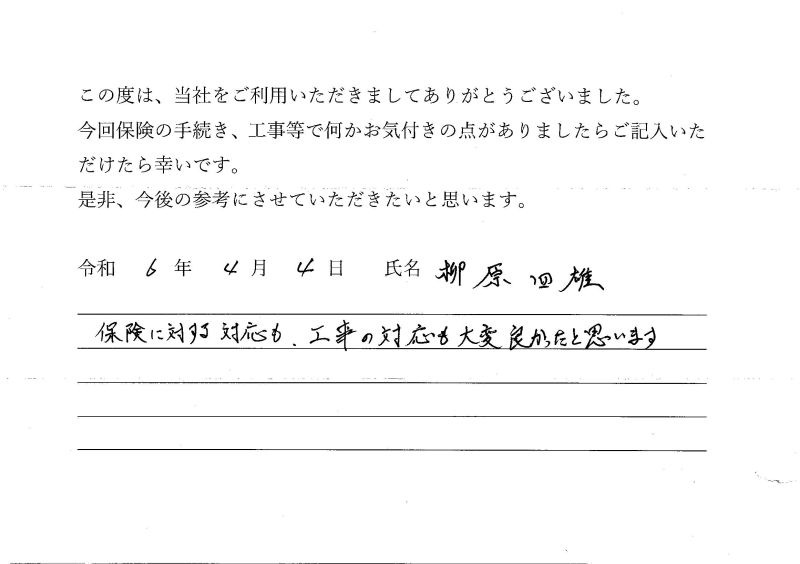 この度は、当社をご利用いただきましてありがとうございました。
今回保険の手続き、工事等で何かお気付きの点がありましたらご記入いた
だけたら幸いです。
是非、今後の参考にさせていただきたいと思います。
令和 6 年 4 月 4 日 氏名 柳原四雄
保険に対する対応も、工事の対応も大変良かったと思います